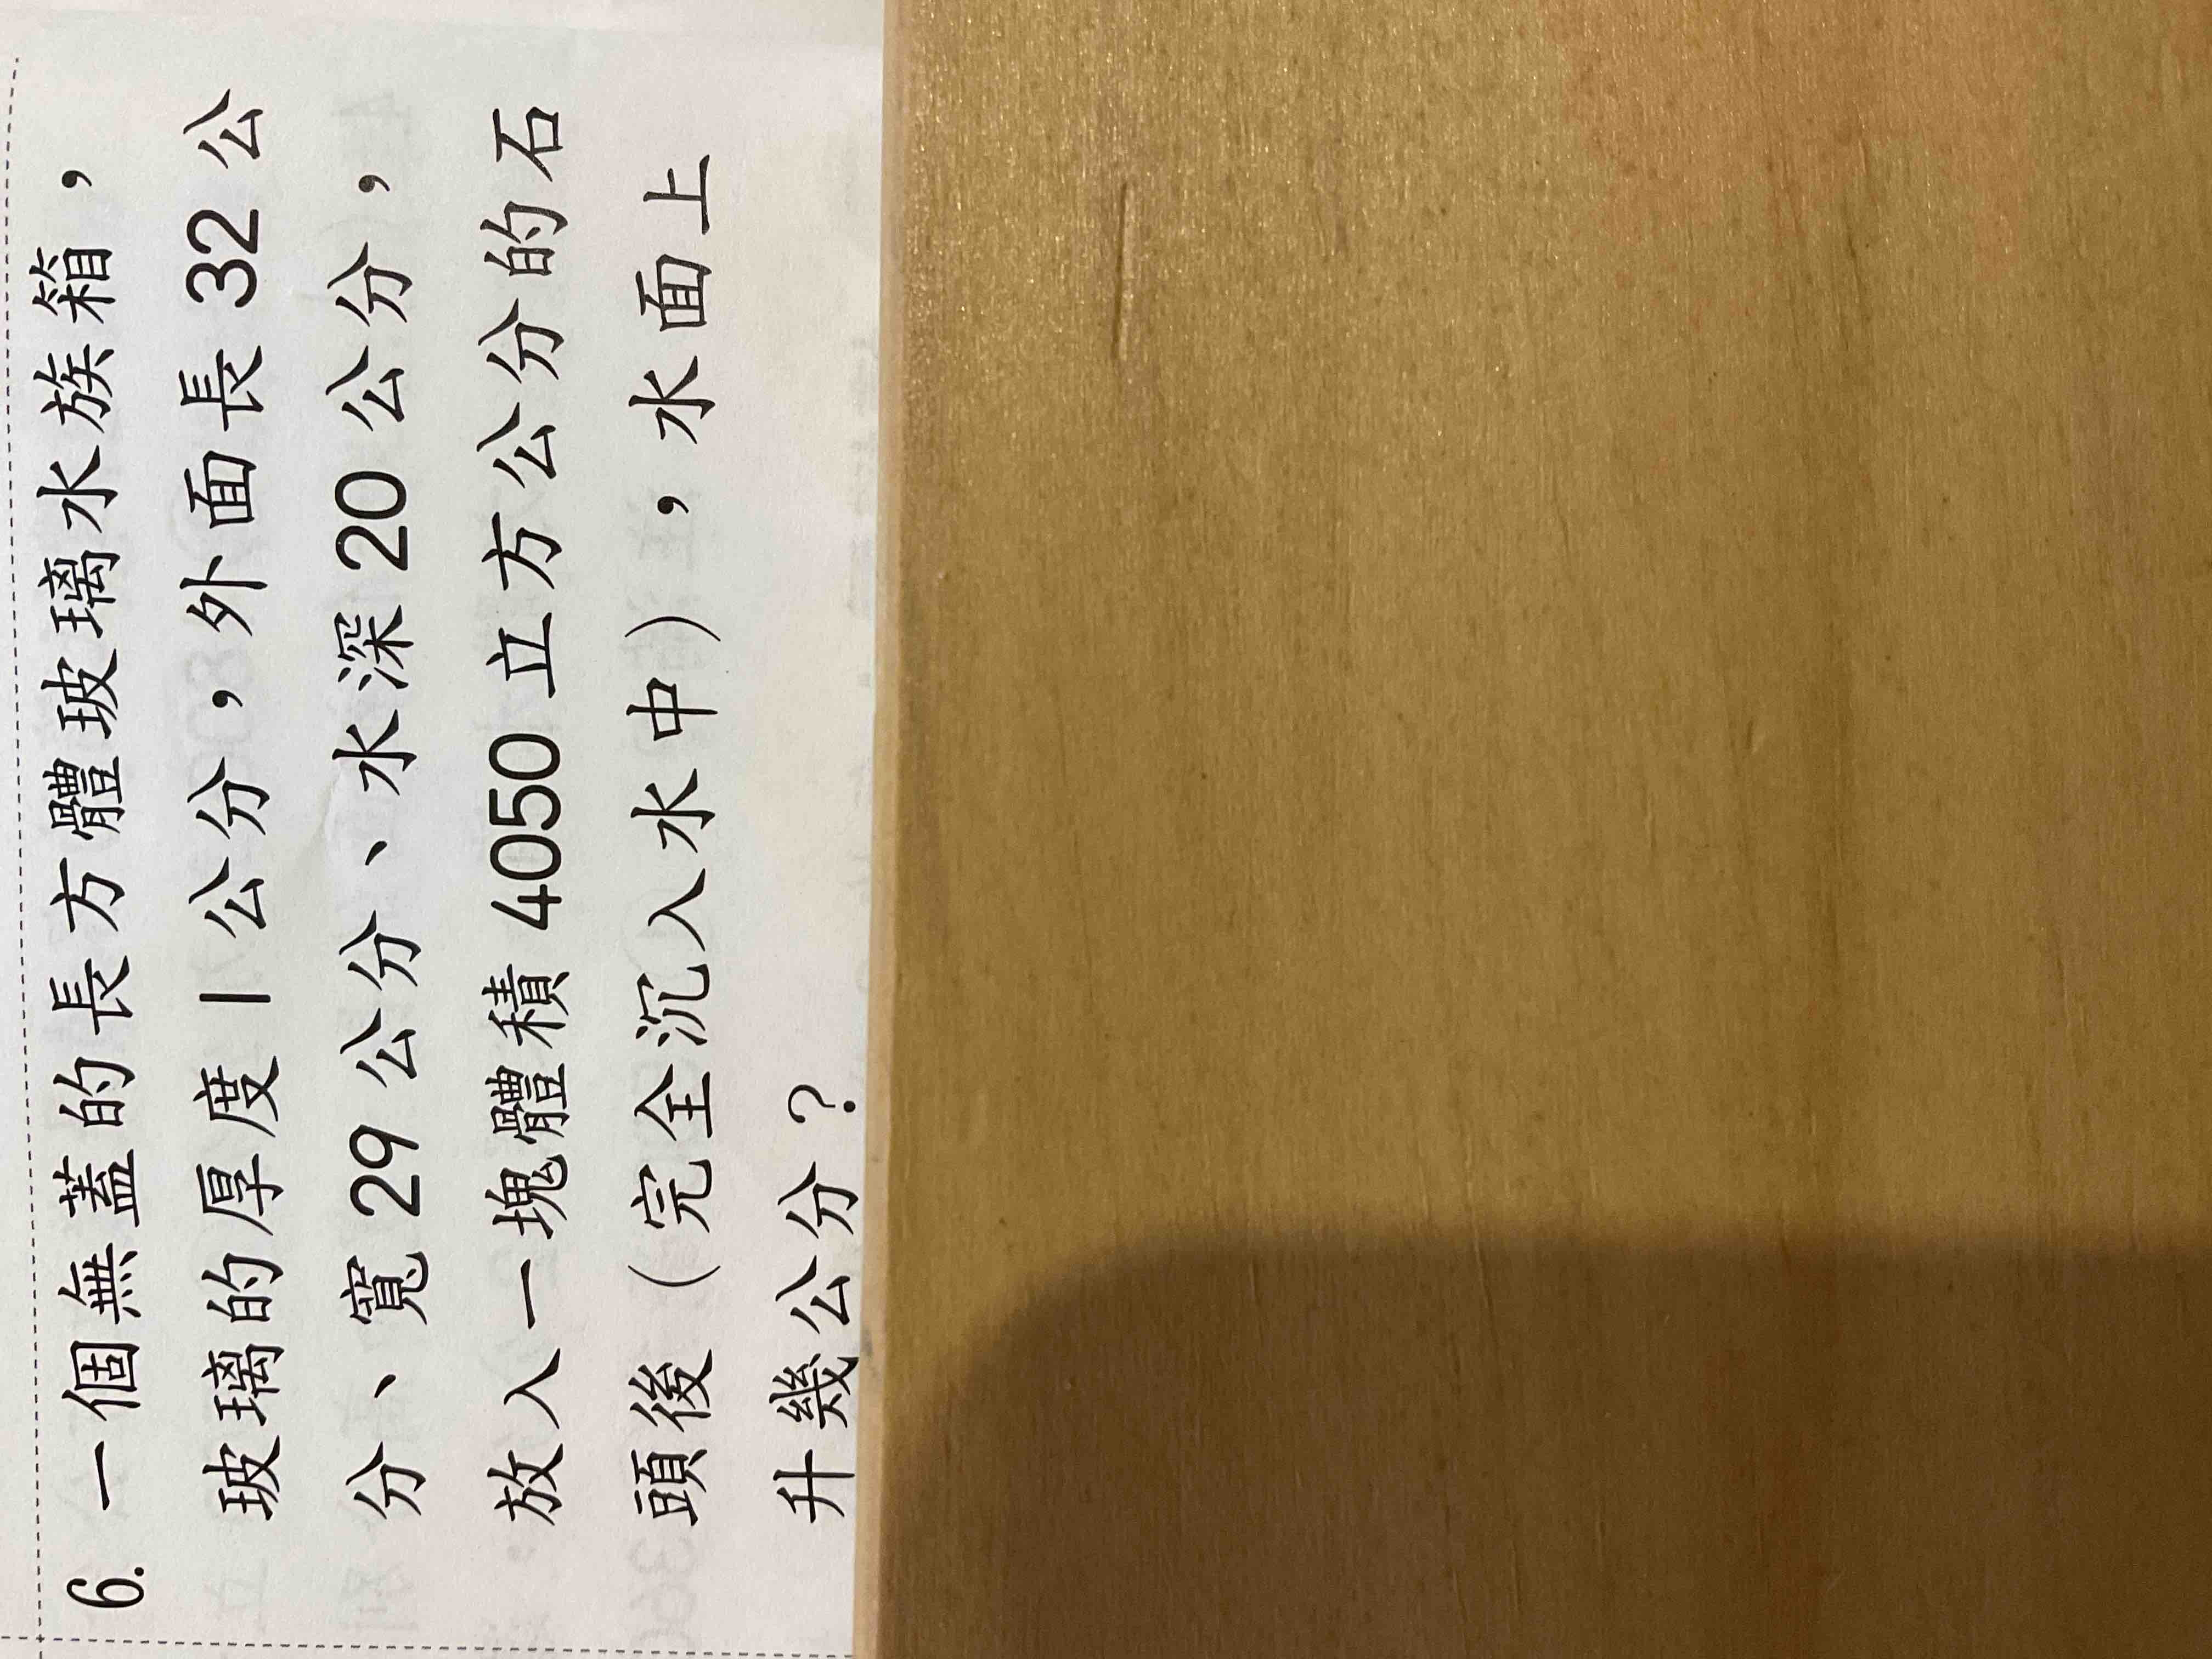 6. 一個無蓋的長方體玻璃水族箱，
玻璃的厚度1公分，外面長32公
分、寬29公分、水深20公分，
放入一塊體積4050立方公分的石
頭後（完全沉入水中），水面上
升幾公分？